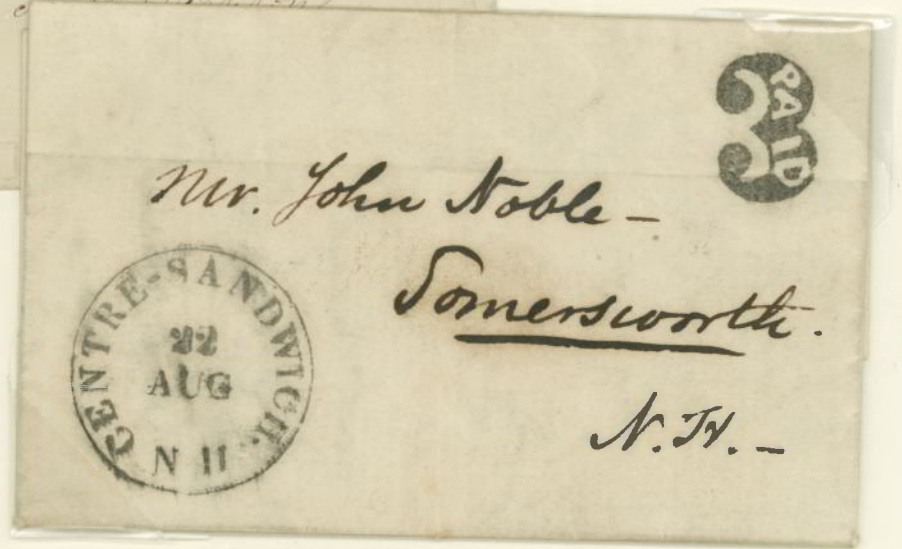 3 PAID
Mr. John Noble -
Somersworth.
N.H. -
CENTRE-SANDWICH.
22
AUG
N H